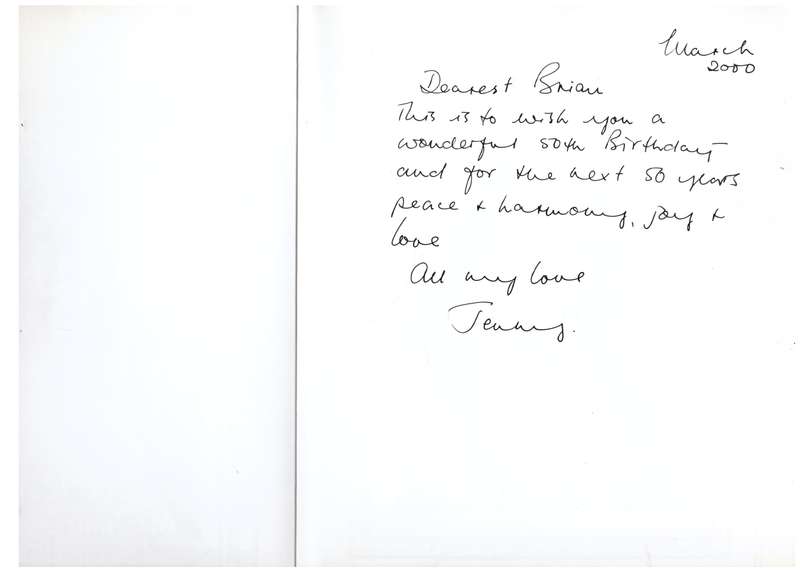 March
2000
Dearest Brian
This is to wish you a
wonderful 50th Birthday
and for the next 50 years
peace + harmony, joy +
love
All my love
Jenny.